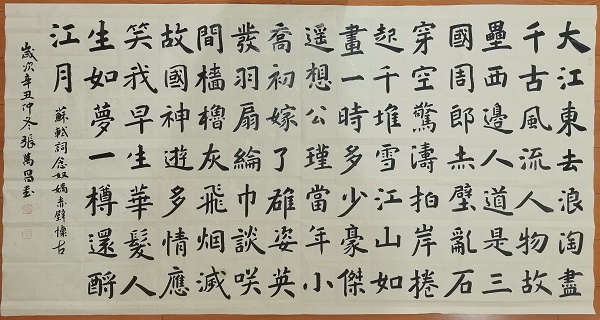 大江東去浪淘盡
千古風流人物故
壘西邊人道是三
國周郎赤壁亂石
穿空驚濤拍岸捲
起千堆雪江山如
畫一時多少豪傑
遥想公瑾當年小
喬初嫁了雄姿英
發羽扇綸巾談咲
間檣櫓灰飛烟滅
故國神遊多情應
笑我早生華髮人
生如夢一樽還酹
江月
蘇軾詞念奴嬌赤壁懷古
歲次辛丑仲冬張萬昌書